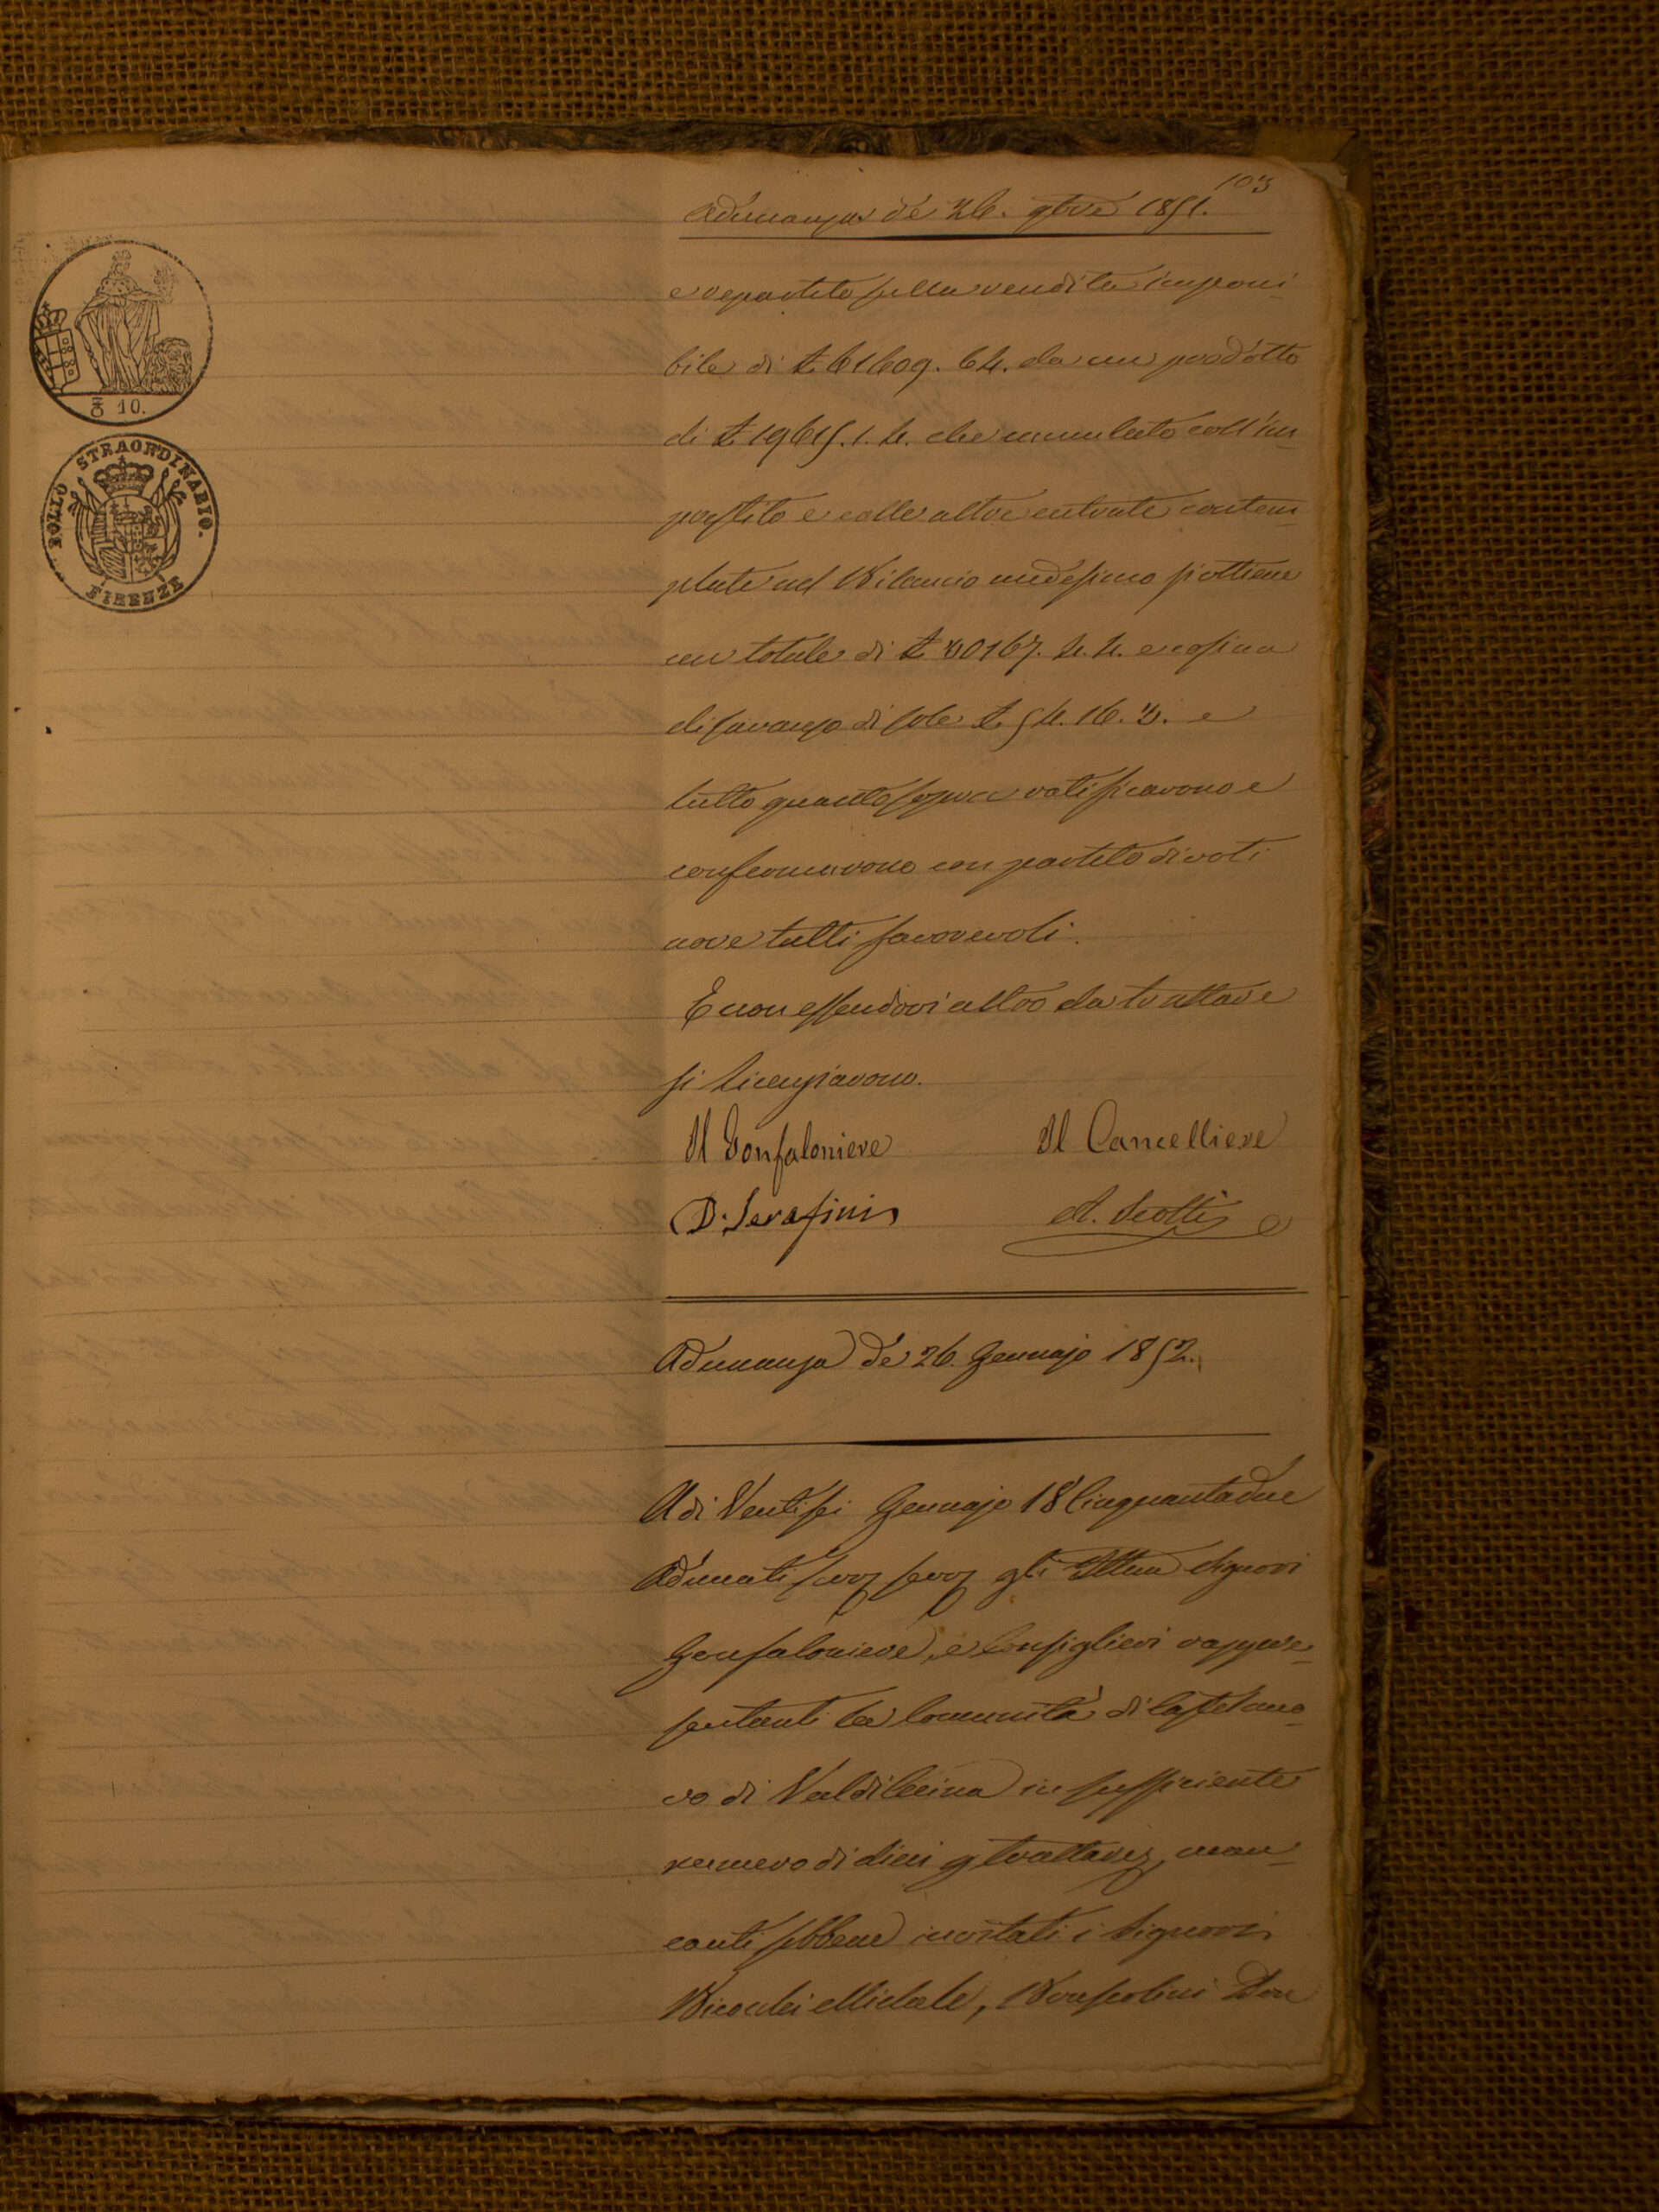 103
Adunanza de' 26. 9bre 1851.
e repartito sulla rendita imponi
bile di £ 61609. 64. da un prodotto
di £ 19615. 1. 4. che cumulato coll'im
prestito e colle altre entrate contem
plate nel Bilancio medesimo si ottiene
un totale di £ 30167. 4. 4. e così un
disavanzo di sole £ 54. 16. 3. e
tutto quanto sopra ratificarono e
confermarono con partito di voti
nove tutti favorevoli.
E non essendovi altro da trattare
si licenziarono.
Il Gonfaloniere Il Cancelliere
D. Serafini A. Scotti
Adunanza de' 26. Gennajo 1852.
A di Ventisei Gennajo 18Cinquantadue
Adunati serv serv gli Illmi Signori
Gonfaloniere, e Consiglieri rappre
sentanti la Comunità di Castelnuo
vo di Valdicecina in sufficiente
numero di dieci p trattare, man
canti sebbene invitati i Signori
Bicocchi Michele, Bonsolini Don
10.
BOLLO STRAORDINARIO.
FIRENZE